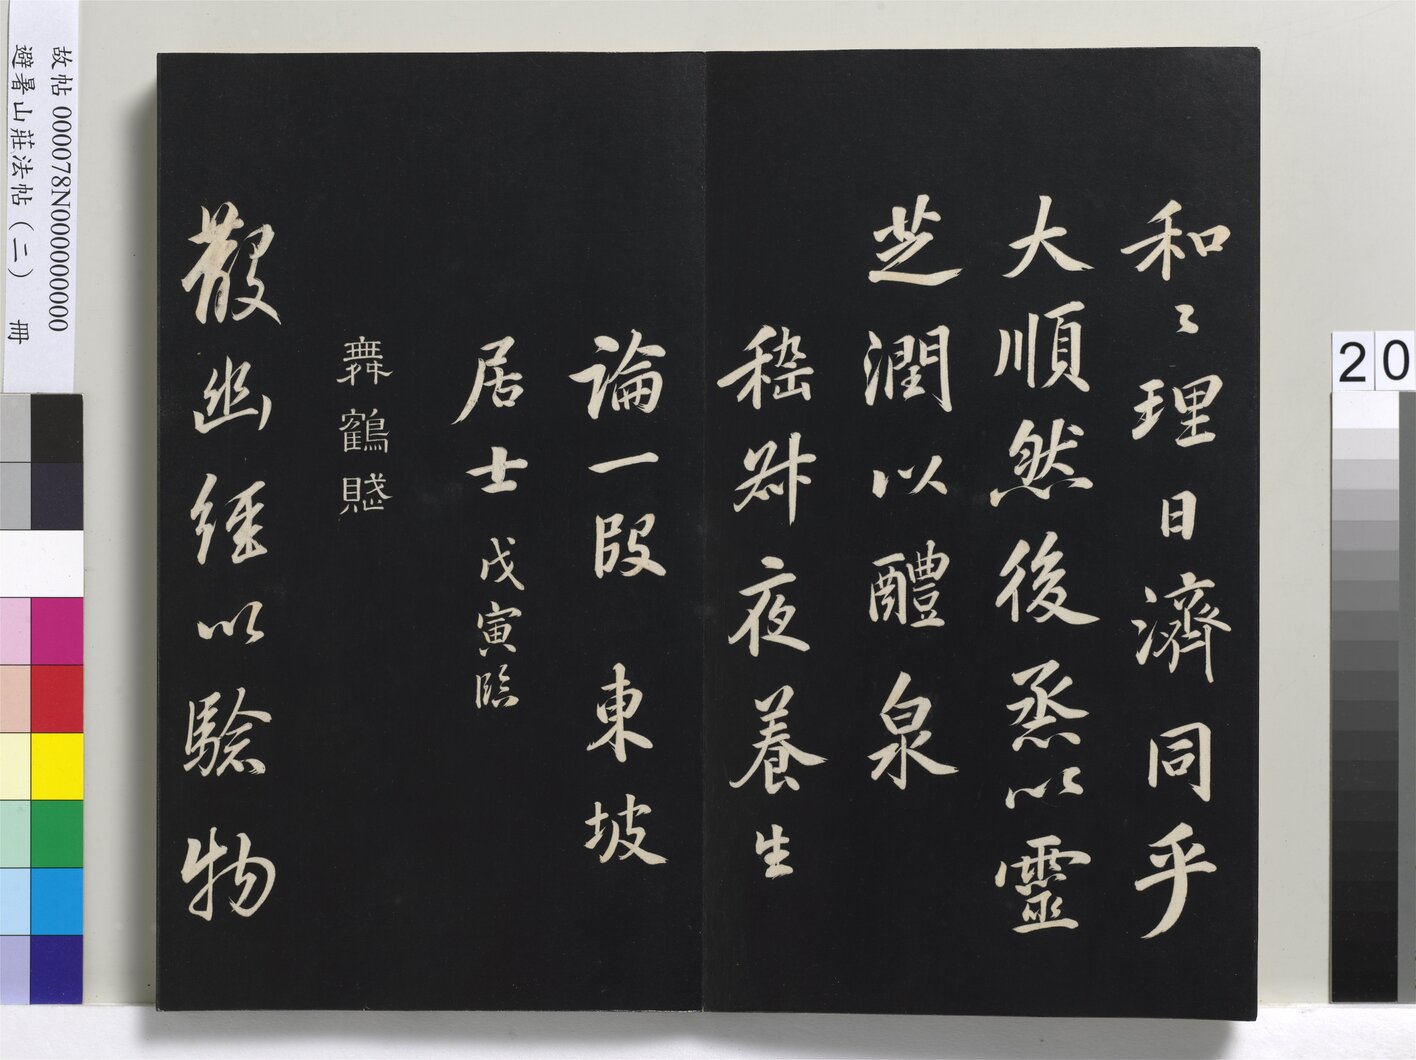 和〻理日濟同乎
大順然後烝以靈
芝潤以醴泉
嵇叔夜養生
論一段 東坡
居士 戊寅臨
舞鶴賦
散幽經以驗物
故帖 000078N000000000
避暑山莊法帖(二) 冊
20